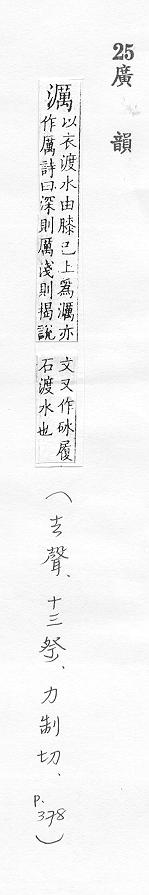 25廣韻
濿以衣渡水由膝已上爲濿亦
作厲詩曰深則厲淺則揭說
文又作砅履
石渡水也
(去聲、十三祭、力制切、p.378)